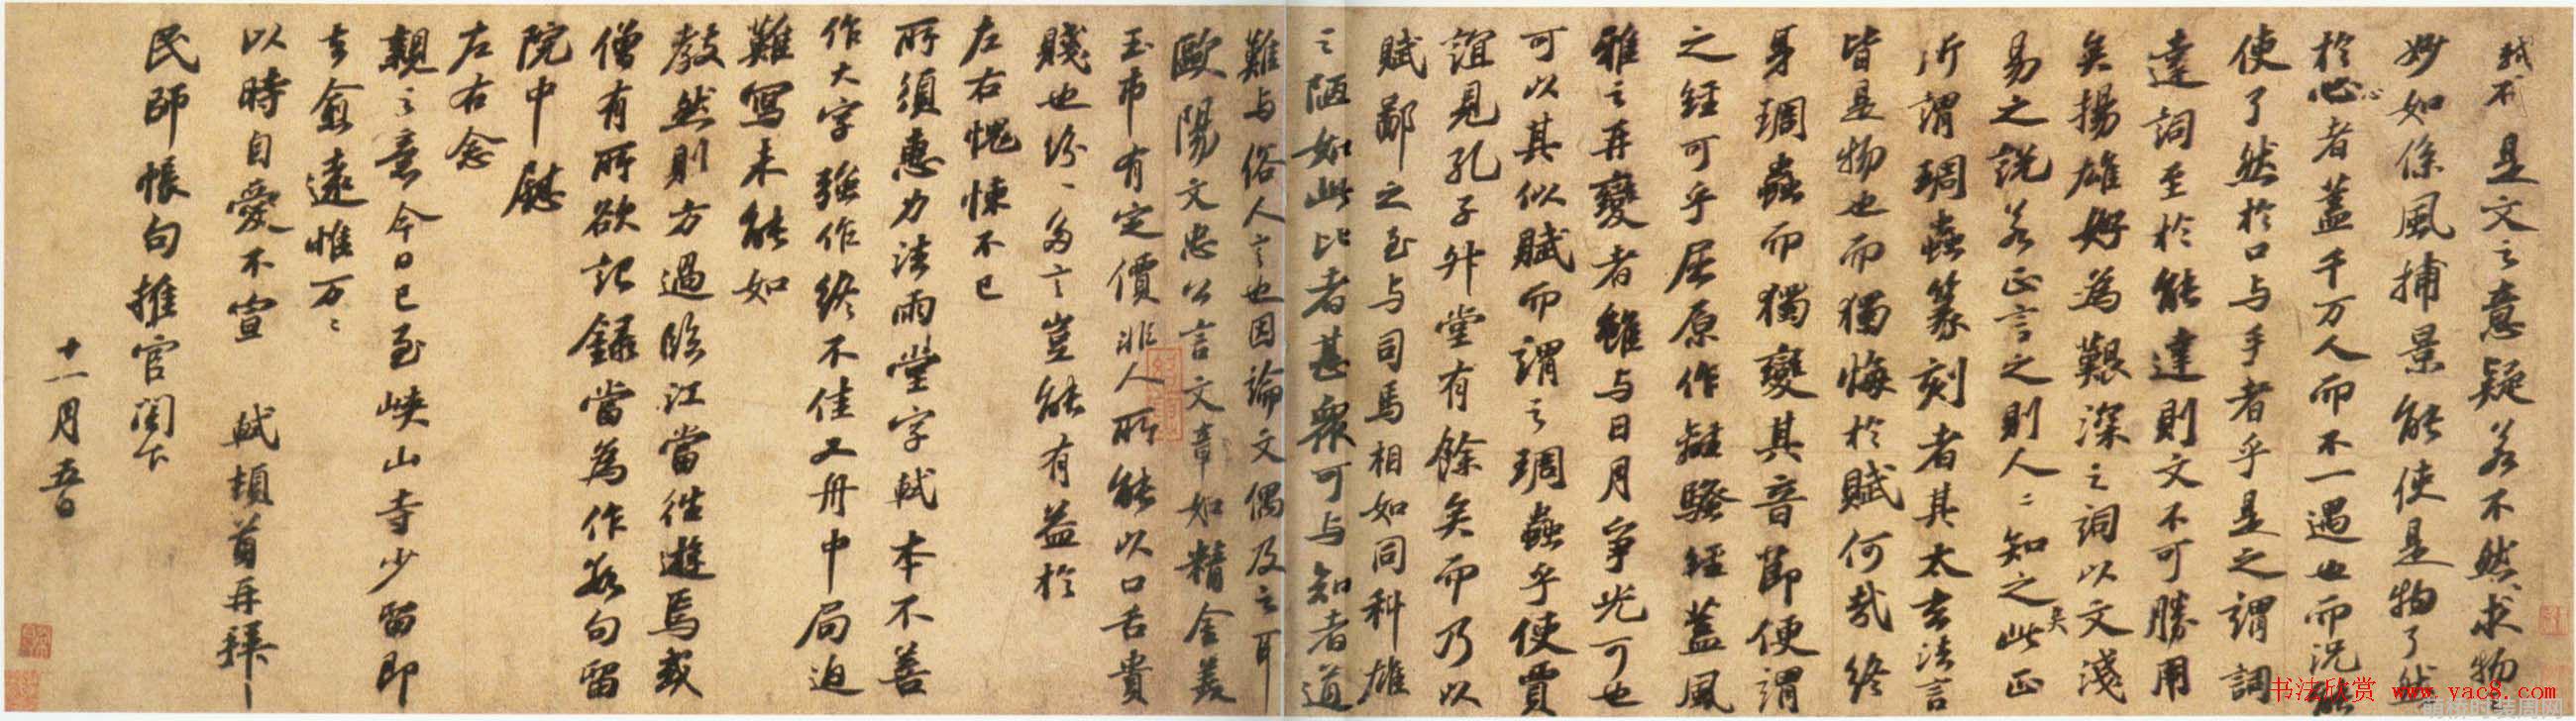 軾不
是文之意疑若不然求物
妙如係風捕景能使是物了然
於心者蓋千万人而不一遇也而況能
使了然於口与手者乎是之謂詞
達詞至於能達則文不可勝用
矣揚雄好為艱深之詞以文淺
易之說若正言之則人〻知之矣此正
所謂琱蟲篆刻者其太玄法言
皆是物也而獨悔於賦何哉終
身琱蟲而獨變其音節便謂
之經可乎屈原作離騷經蓋風
雅之再變者雖与日月爭光可也
可以其似賦而謂之琱蟲乎使賈
誼見孔子升堂有餘矣而乃以
賦鄙之至与司馬相如同科雄
之陋如此比者甚衆可与知者道
難与俗人言也因論文偶及之耳
歐陽文忠公言文章如精金美
玉市有定價非人所能以口舌貴
賤也紛〻多言豈能有益於
左右愧悚不已
所須惠力法雨堂字軾本不善
作大字強作終不佳又舟中局迫
難寫未能如
教然則方過臨江當往遊焉或
僧有所欲記錄當為作數句留
院中慰
左右念
親之意今日已至峽山寺少留即
去愈遠惟万〻
以時自愛不宣 軾頓首再拜
民師帳句推官閣下
十一月五日
书法欣赏 www.yac8.com
萌桥时装周网